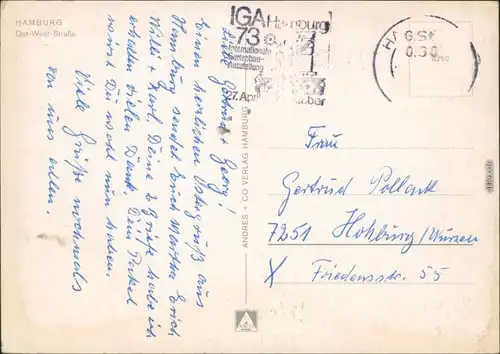 HAMBURG
Ost-West-Straße
IGA Hamburg
73
Internationale
Gartenbau-
Ausstellung
27. April
ober
0.30
Liebe Gertrud + Georg!
Einen herzlichen Ostergruß aus
Hamburg sendet Erich Martha, Erich
Willi + Karl. Deine 2 Briefe habe ich
erhalten vielen Dank. Dein Paket
wirst Du wohl nun haben.
Viele Grüße nochmals
von uns allen.
ANDRES + CO VERLAG HAMBURG
Frau
Gertrud Pollack
7251 Hohburg/Wurzen
X Friedensstr. 55